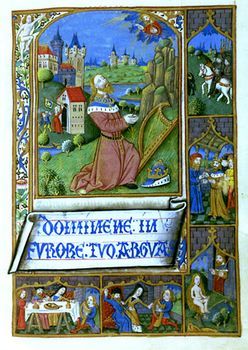 DOMINE NE IN
FVRORE TVO ARGVA